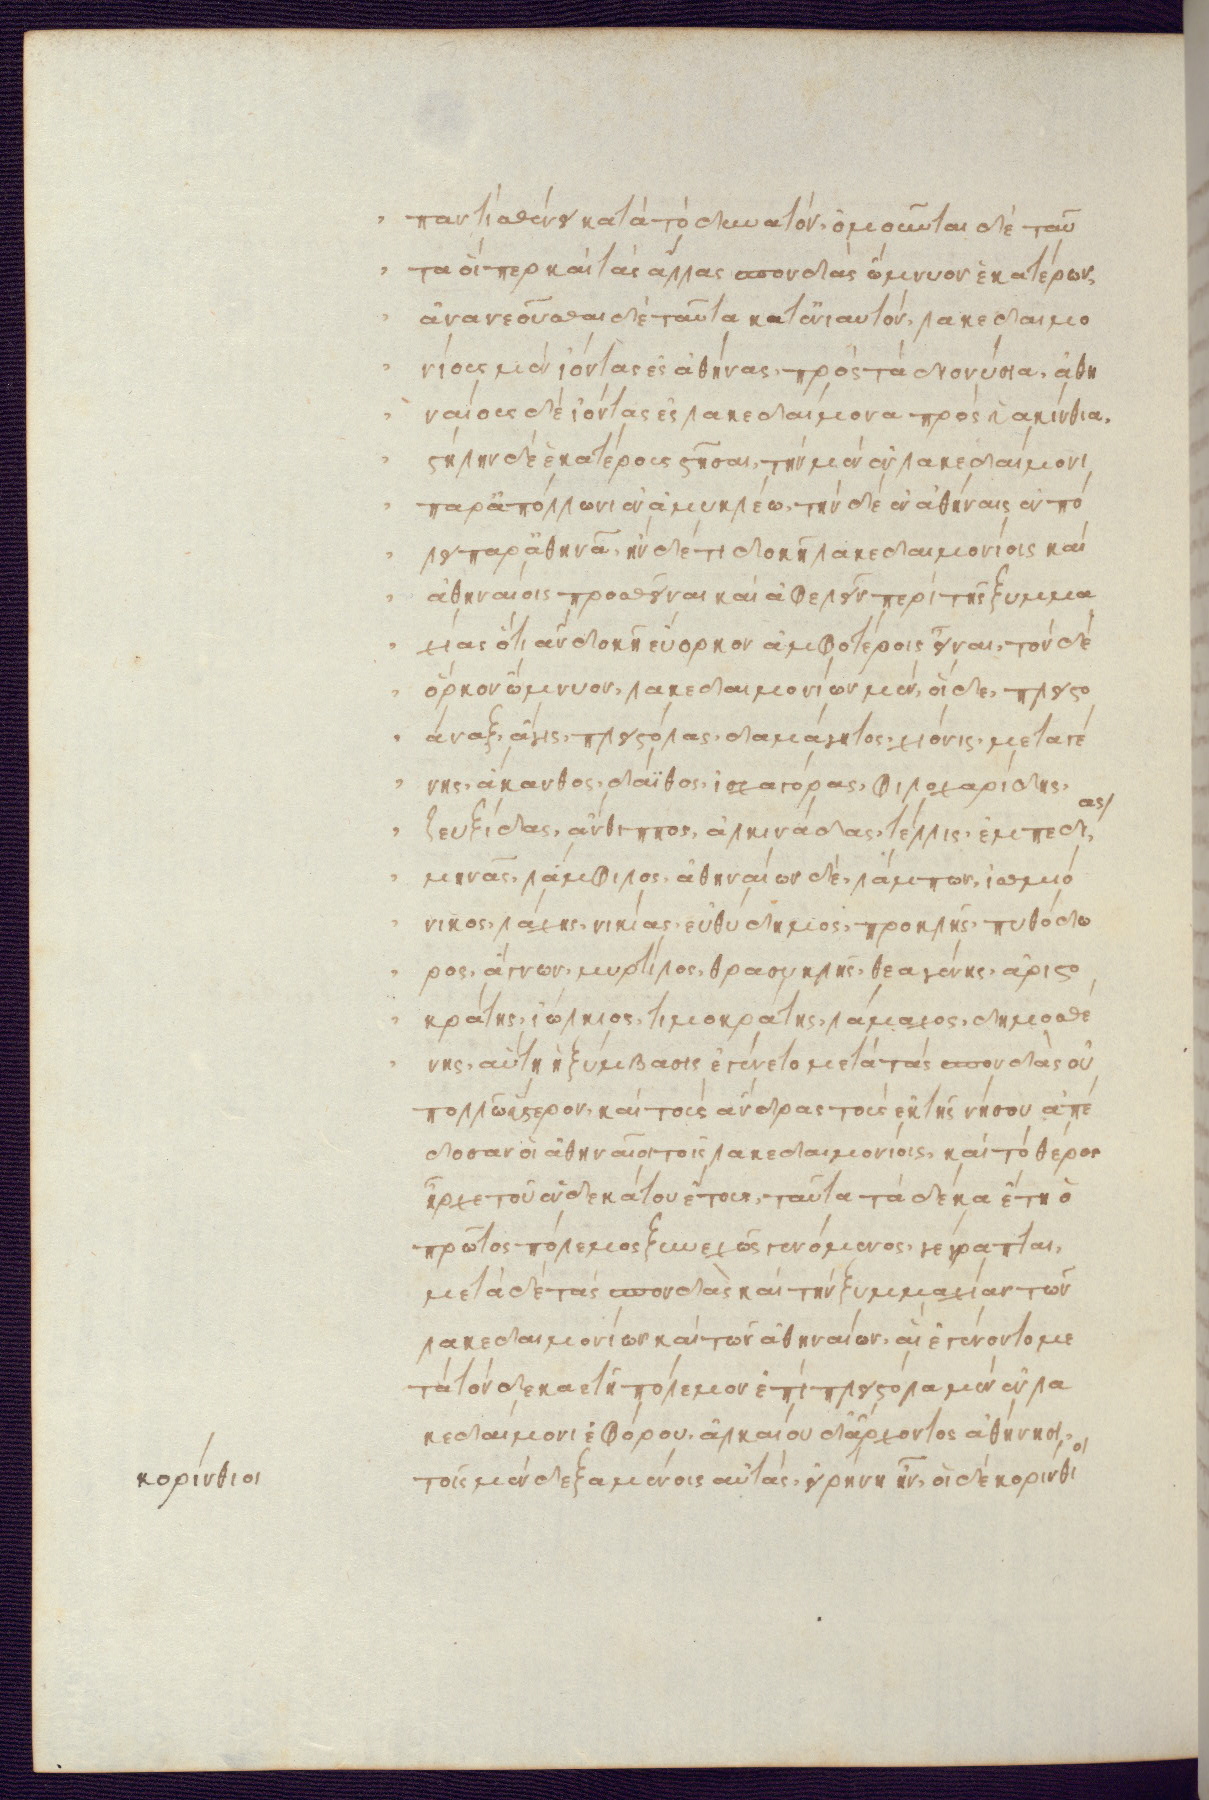 παντὶ σθένει κατὰ τὸ δυνατόν. ὀμοῦνται δὲ ταῦ
τα οἵπερ καὶ τὰς ἄλλας σπονδὰς ὤμνυον ἑκατέρων.
ἀνανεοῦσθαι δὲ ταῦτα κατ' ἐνιαυτὸν, λακεδαιμο
νίους μὲν ἰόντας ἐς ἀθήνας, πρὸς τὰ διονύσια. ἀθη
ναίους δὲ ἰόντας ἐς λακεδαίμονα πρὸς ὑακίνθια.
στήλην δὲ ἑκατέρους στῆσαι, τὴν μὲν ἐν λακεδαίμονι
παρ' ἀπόλλωνι ἐν ἀμυκλέω, τὴν δὲ ἐν ἀθήναις ἐν πό
λει παρ' ἀθηνᾶ, ἢν δέ τι δοκῆ λακεδαιμονίοις καὶ
ἀθηναίοις προσθεῖναι καὶ ἀφελεῖν περὶ τῆς ξυμμα
χίας ὅτι ἂν δοκῆ εὔορκον ἀμφοτέροις εἶναι, τὸν δὲ
ὅρκον ὤμνυον, λακεδαιμονίων μὲν, οἵδε, πλειστο
άναξ, ἆγις, πλειστόλας, δαμάγητος, χίονις, μεταγέ
νης, ἄκανθος, δάϊθος, ἰσχαγόρας, φιλοχαρίδης,
ζευξίδας, ἄνθιππος, ἀλκινάδας, τέλλις, ἐμπεδίας,
μηνᾶς, λάμφιλος, ἀθηναίων δὲ, λάμπων, ἰσθμιό
νικος, λάχης, νικίας, εὐθύδημος, προκλῆς, πυθόδω
ρος, ἅγνων, μυρτίλος, θρασυκλῆς, θεαγένης, ἀριστο
κράτης, ἰώλκιος, τιμοκράτης, λάμαχος, δημοσθέ
νης, αὕτη ἡ ξύμβασις ἐγένετο μετὰ τὰς σπονδὰς οὐ
πολλῶ ὕστερον, καὶ τοὺς ἄνδρας τοὺς ἐκ τῆς νήσου ἀπέ
δοσαν οἱ ἀθηναῖοι τοῖς λακεδαιμονίοις, καὶ τὸ θέρος
ἦρχε τοῦ ἑνδεκάτου ἔτους, ταῦτα τὰ δέκα ἔτη ὁ
πρῶτος πόλεμος ξυνεχῶς γενόμενος, γέγραπται,
μετὰ δὲ τὰς σπονδὰς καὶ τὴν ξυμμαχίαν τῶν
λακεδαιμονίων καὶ τῶν ἀθηναίων, αἳ ἐγένοντο με
τὰ τὸν δεκαετῆ πόλεμον ἐπὶ πλειστόλα μὲν ἐν λα
κεδαίμονι ἐφόρου, ἀλκαίου δ' ἄρχοντος ἀθήνησι,
τοῖς μὲν δεξαμένοις αὐτὰς, εἰρήνη ἦν, οἱ δὲ κορίνθιοι
κορίνθιοι